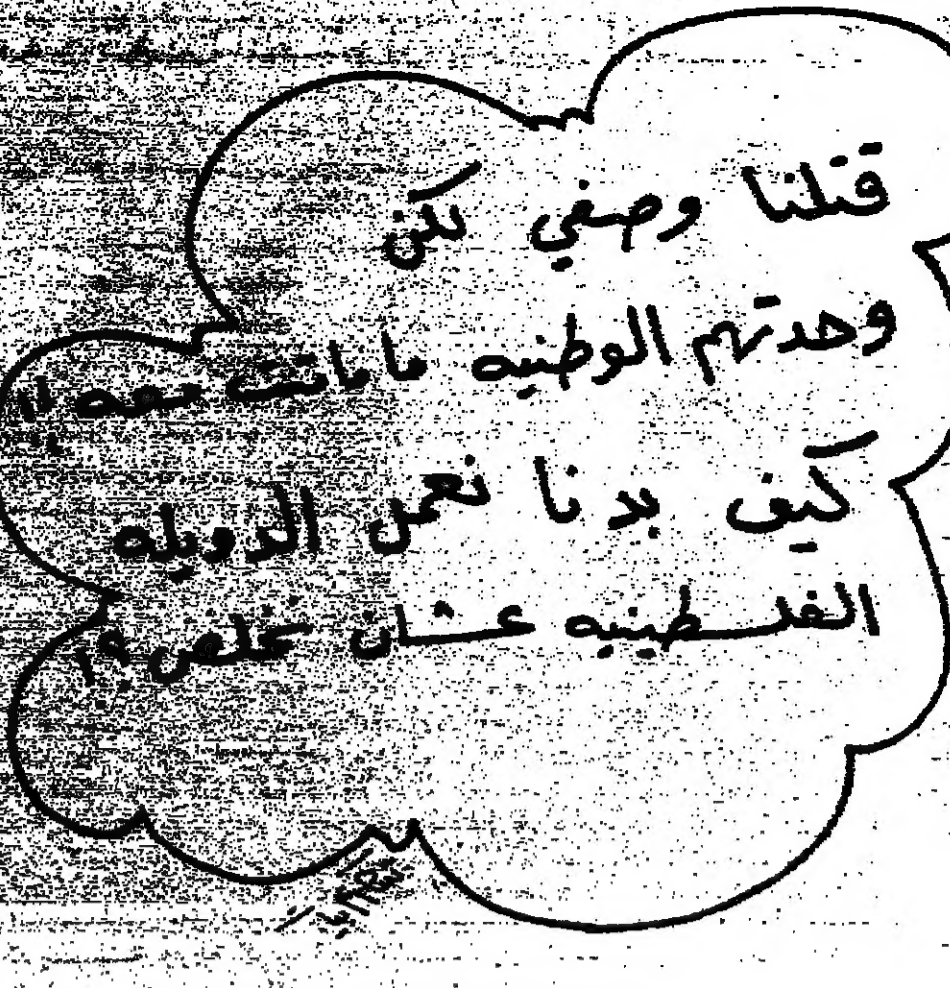 قتلنا وصفي لكن
وحدتهم الوطنيه ما ماتت معه !!
كيف بدنا نعمل الدويله
الفلسطينيه عشان نخلص ؟!